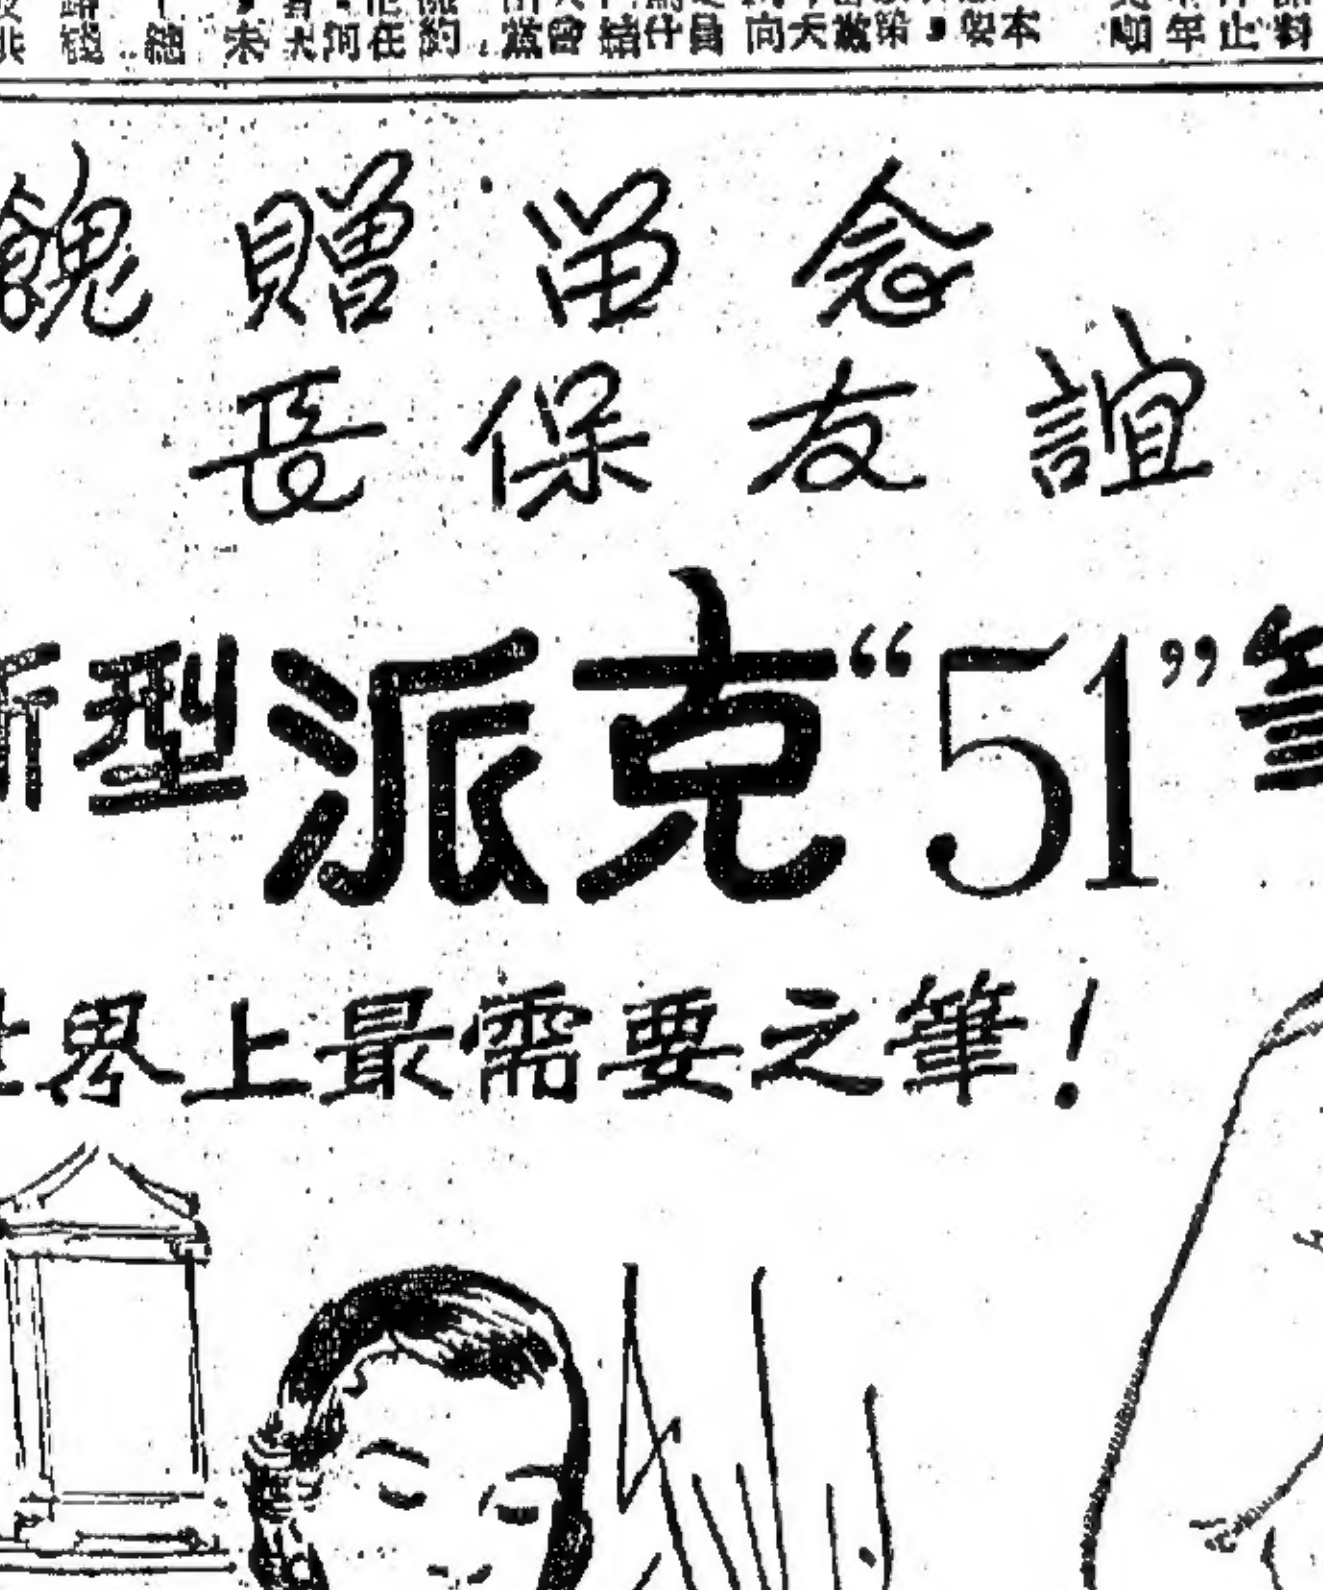 餽贈留念
長保友誼
新型派克“51”筆
世界上最需要之筆！